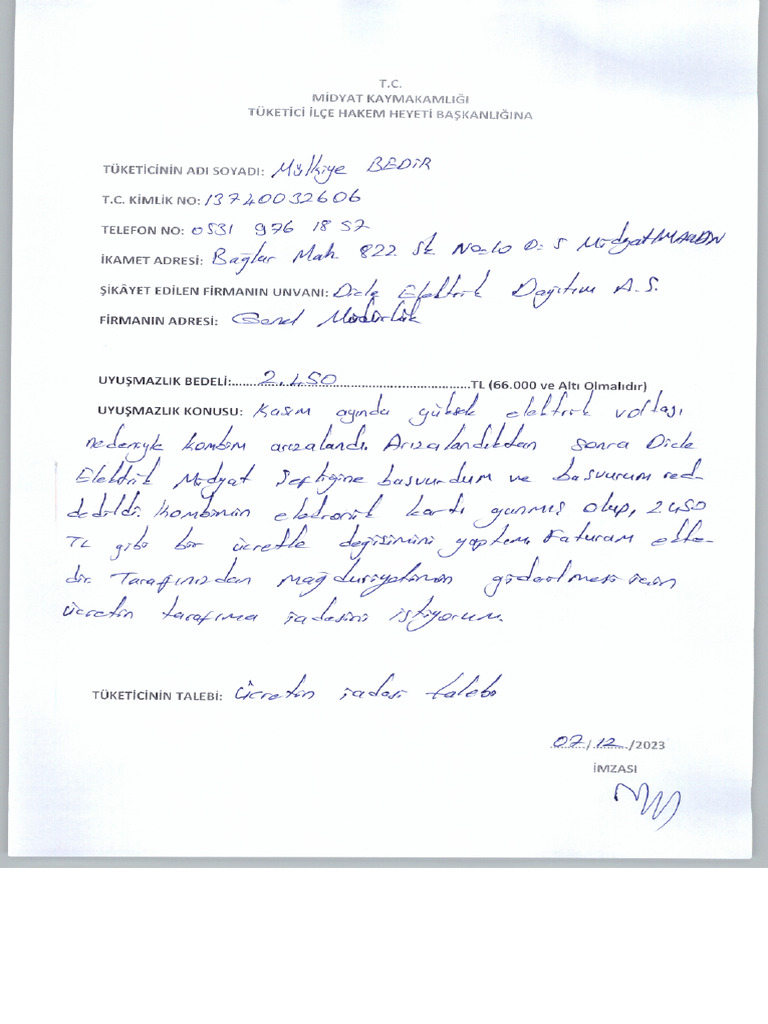 T.C.
MİDYAT KAYMAKAMLIĞI
TÜKETİCİ İLÇE HAKEM HEYETİ BAŞKANLIĞINA
TÜKETİCİNİN ADI SOYADI: Mülkiye BEDİR
T.C. KİMLİK NO: 13740032606
TELEFON NO: 0531 976 18 57
İKAMET ADRESİ: Bağlar Mah. 822. Sk. No=10 D: 5 Midyat/MARDİN
ŞİKÂYET EDİLEN FİRMANIN UNVANI: Dicle Elektrik Dağıtım A.Ş.
FİRMANIN ADRESİ: Genel Müdürlük
UYUŞMAZLIK BEDELİ:......2.450......TL (66.000 ve Altı Olmalıdır)
UYUŞMAZLIK KONUSU: Kasım ayında yüksek elektrik voltajı
nedeniyle kombim arızalandı. Arızalandıktan sonra Dicle
Elektrik Midyat Şefliğine başvurdum ve başvurum red-
dedildi. Kombimin elektronik kartı yanmış olup, 2450
TL gibi bir ücretle değişimini yaptım. Faturam ekte-
dir. Tarafınızdan mağduriyetimin giderilmesi için
ücretin tarafıma iadesini istiyorum.
TÜKETİCİNİN TALEBİ: Ücretin iadesi talebi
07/12/2023
İMZASI